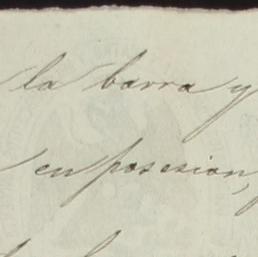 la barra y
en posesion,